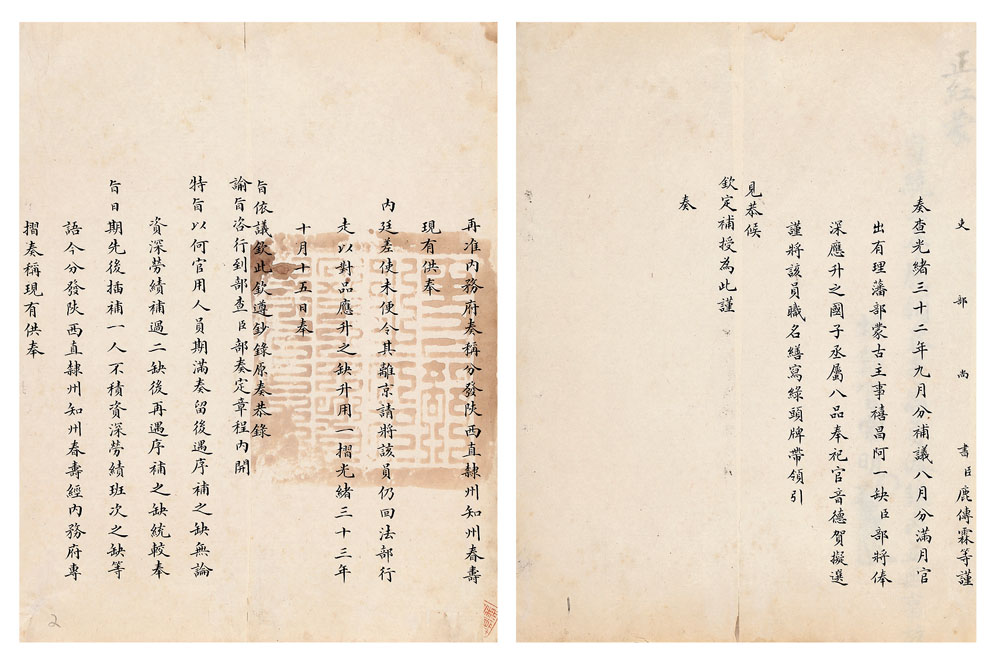 吏部尚書臣鹿傳霖等謹
奏查光緒三十二年九月分補議八月分滿月官
出有理藩部蒙古主事禧昌阿一缺臣部將俸
深應升之國子丞屬八品奉祀官音德賀擬選
謹將該員職名繕寫綠頭牌帶領引
見恭候
欽定補授為此謹
奏
再准內務府奏稱分發陝西直隸州知州春壽
現有供奉
內廷差使未便令其離京請將該員仍回法部行
走以對品應升之缺升用一摺光緒三十三年
十月十五日奉
旨依議欽此欽遵鈔錄原奏恭錄
諭旨咨行到部查臣部奏定章程內開
特旨以何官用人員期滿奏留後遇序補之缺無論
資深勞績補過二缺後再遇序補之缺統較奉
旨日期先後插補一人不積資深勞績班次之缺等
語今分發陝西直隸州知州春壽經內務府專
摺奏稱現有供奉
1
2